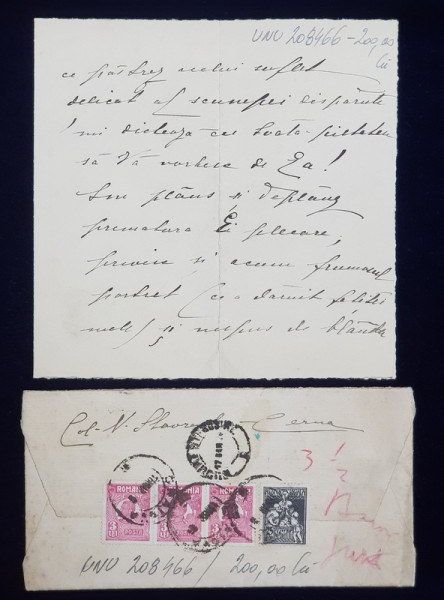 UNU 208466 - 200,00
lei
ce păstrez acelui suflet
delicat al scumpei dispărute
îmi dictează cu toată pietatea
să Vă vorbesc de Ea!
Am plâns și deplâng
prematura Ei plecare,
privesc și acum frumosul
portret ce a dăruit fetiței
mele și nespus de blânda
Col. N. Cerna
3 1/2
ROMANIA ROMANIA ROMANIA
3 3 3
LEI LEI LEI
UNU 208466 / 200,00 lei